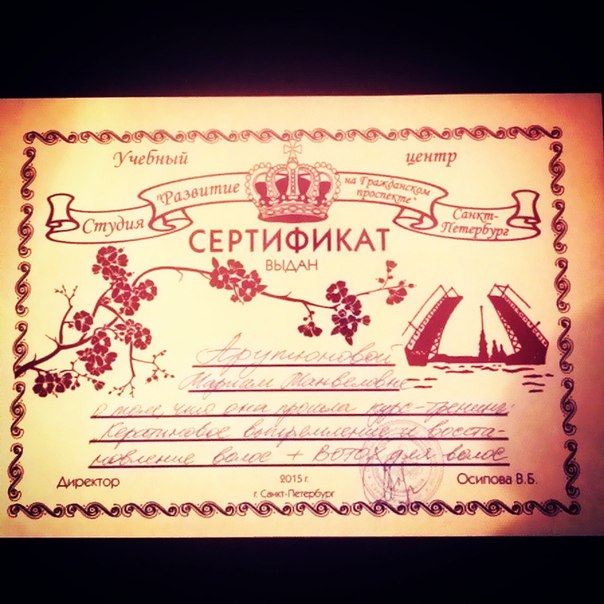 Учебный центр
Студия "Развитие на Гражданском проспекте" Санкт-Петербург
СЕРТИФИКАТ
ВЫДАН
Арутюновой
Мариам Манвеловне
о том, что она прошла курс-тренинг
Кератиновое выпрямление и восста-
новление волос + Ботох для волос
Директор 2015 г. Осипова В.Б.
г. Санкт-Петербург